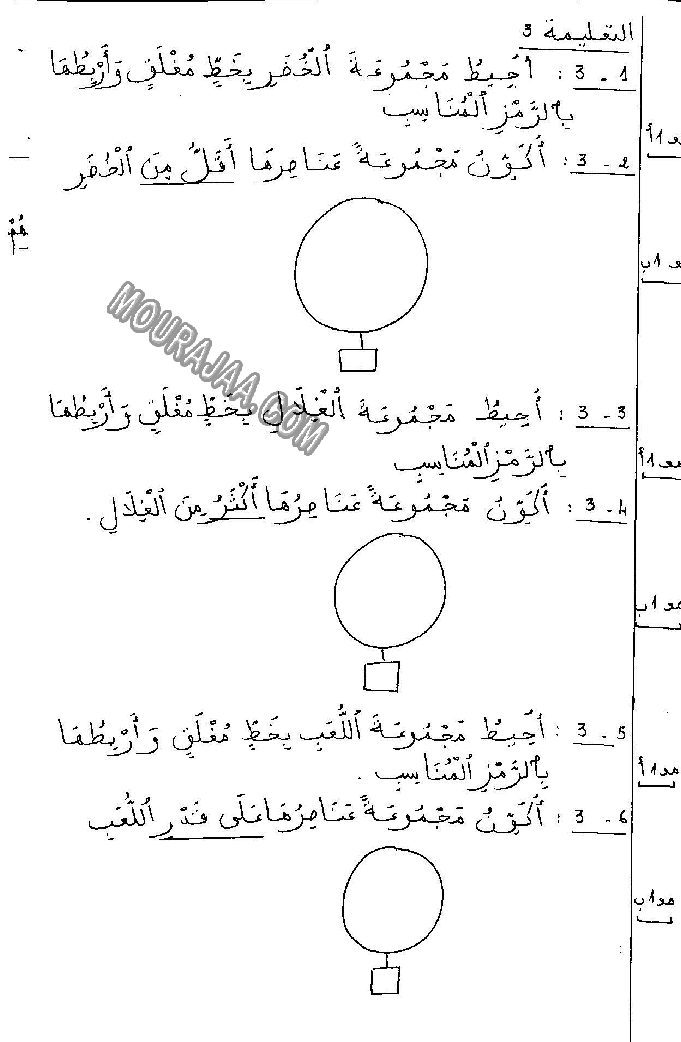 التعليمة 3
3 - 1 : أُحِيطُ مَجْمُوعَةَ الْخُضَرِ بِخَطٍّ مُغْلَقٍ وَأَرْبِطُهَا
بِالرَّمْزِ الْمُنَاسِبِ
مع 1 أ
3 - 2 : أُكَوِّنُ مَجْمُوعَةً عَنَاصِرُهَا أَقَلُّ مِنَ الْخُضَرِ
مع 1 ب
MOURAJAA.COM
3 - 3 : أُحِيطُ مَجْمُوعَةَ الْغِلَالِ بِخَطٍّ مُغْلَقٍ وَأَرْبِطُهَا
بِالرَّمْزِ الْمُنَاسِبِ
مع 1 أ
3 - 4 : أُكَوِّنُ مَجْمُوعَةً عَنَاصِرُهَا أَكْثَرُ مِنَ الْغِلَالِ .
مع 1 ب
3 - 5 : أُحِيطُ مَجْمُوعَةَ اللُّعَبِ بِخَطٍّ مُغْلَقٍ وَأَرْبِطُهَا
بِالرَّمْزِ الْمُنَاسِبِ .
مع 1 أ
3 - 6 : أُكَوِّنُ مَجْمُوعَةً عَنَاصِرُهَا عَلَى قَدْرِ اللُّعَبِ
مع 1 ب